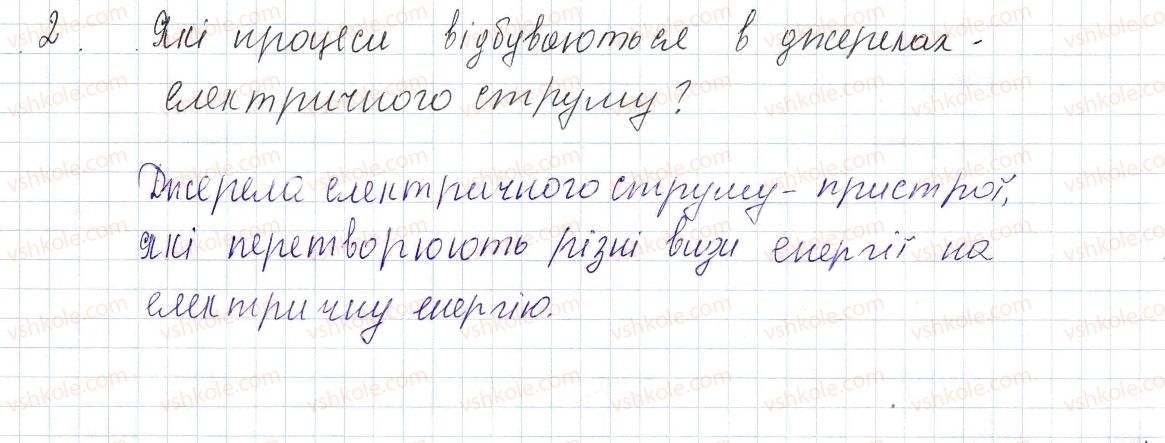 2. Які процеси відбуваються в джерелах -
електричного струму?
Джерела електричного струму - пристрої,
які перетворюють різні види енергії на
електричну енергію.